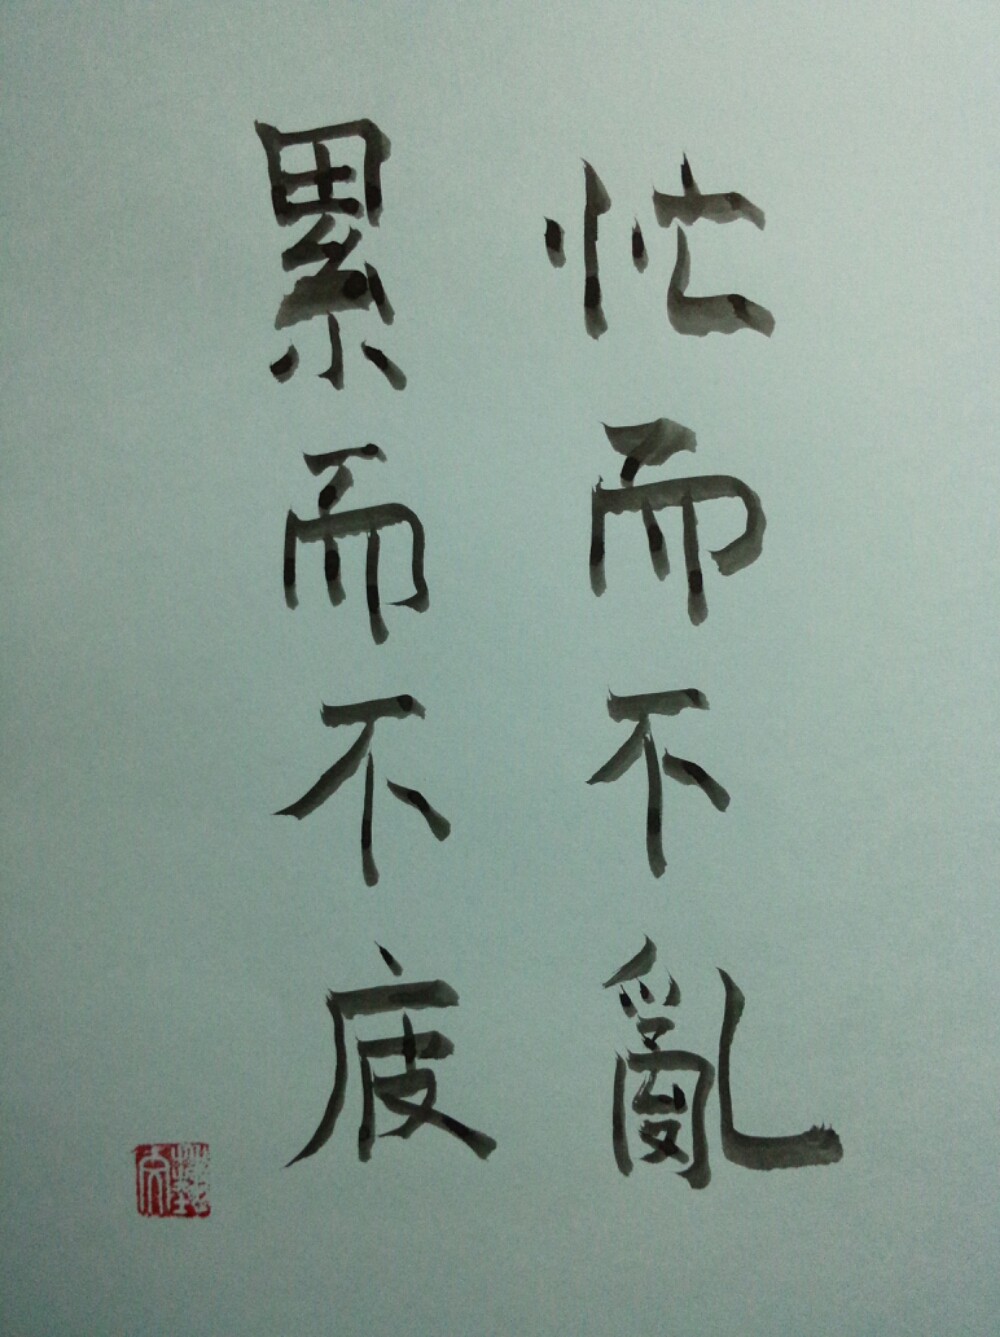 忙而不亂
累而不疲